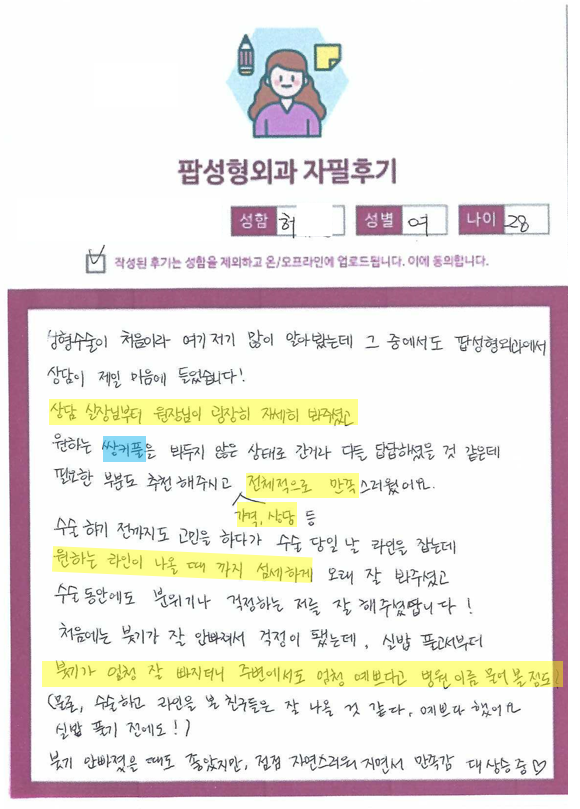 팝성형외과 자필후기
성함 허 성별 여 나이 28
작성된 후기는 성함을 제외하고 온/오프라인에 업로드됩니다. 이에 동의합니다.
성형수술이 처음이라 여기저기 많이 알아봤는데 그 중에서도 팝성형외과에서
상담이 제일 마음에 들었습니다!
상담 실장님부터 원장님이 굉장히 자세히 봐주셨고
원하는 쌍커풀을 봐두지 않은 상태로 간거라 다들 답답하셨을 것 같은데
필요한 부분도 추천 해주시고 전체적으로 만족스러웠어요.
가격, 상담 등
수술 하기 전까지도 고민을 하다가 수술 당일 날 라인을 잡는데
원하는 라인이 나올 때 까지 섬세하게 오래 잘 봐주셨고
수술동안에도 분위기나 걱정하는 저를 잘 해주셨답니다!
처음에는 붓기가 잘 안빠져서 걱정이 됐는데, 실밥 풀고서부터
붓기가 엄청 잘 빠지더니 주변에서도 엄청 예쁘다고 병원이름 물어볼 정도!
(물론, 수술하고 라인을 본 친구들은 잘 나올 것 같다, 예쁘다 했어요
실밥 풀기 전에도!)
붓기 안빠졌을 때도 좋았지만, 점점 자연스러워지면서 만족감 대상승중♡